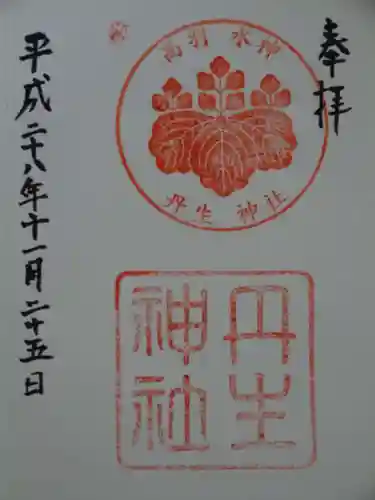 奉拝
水神
丹生 神社
丹生
神社
平成二十八年十一月二十五日